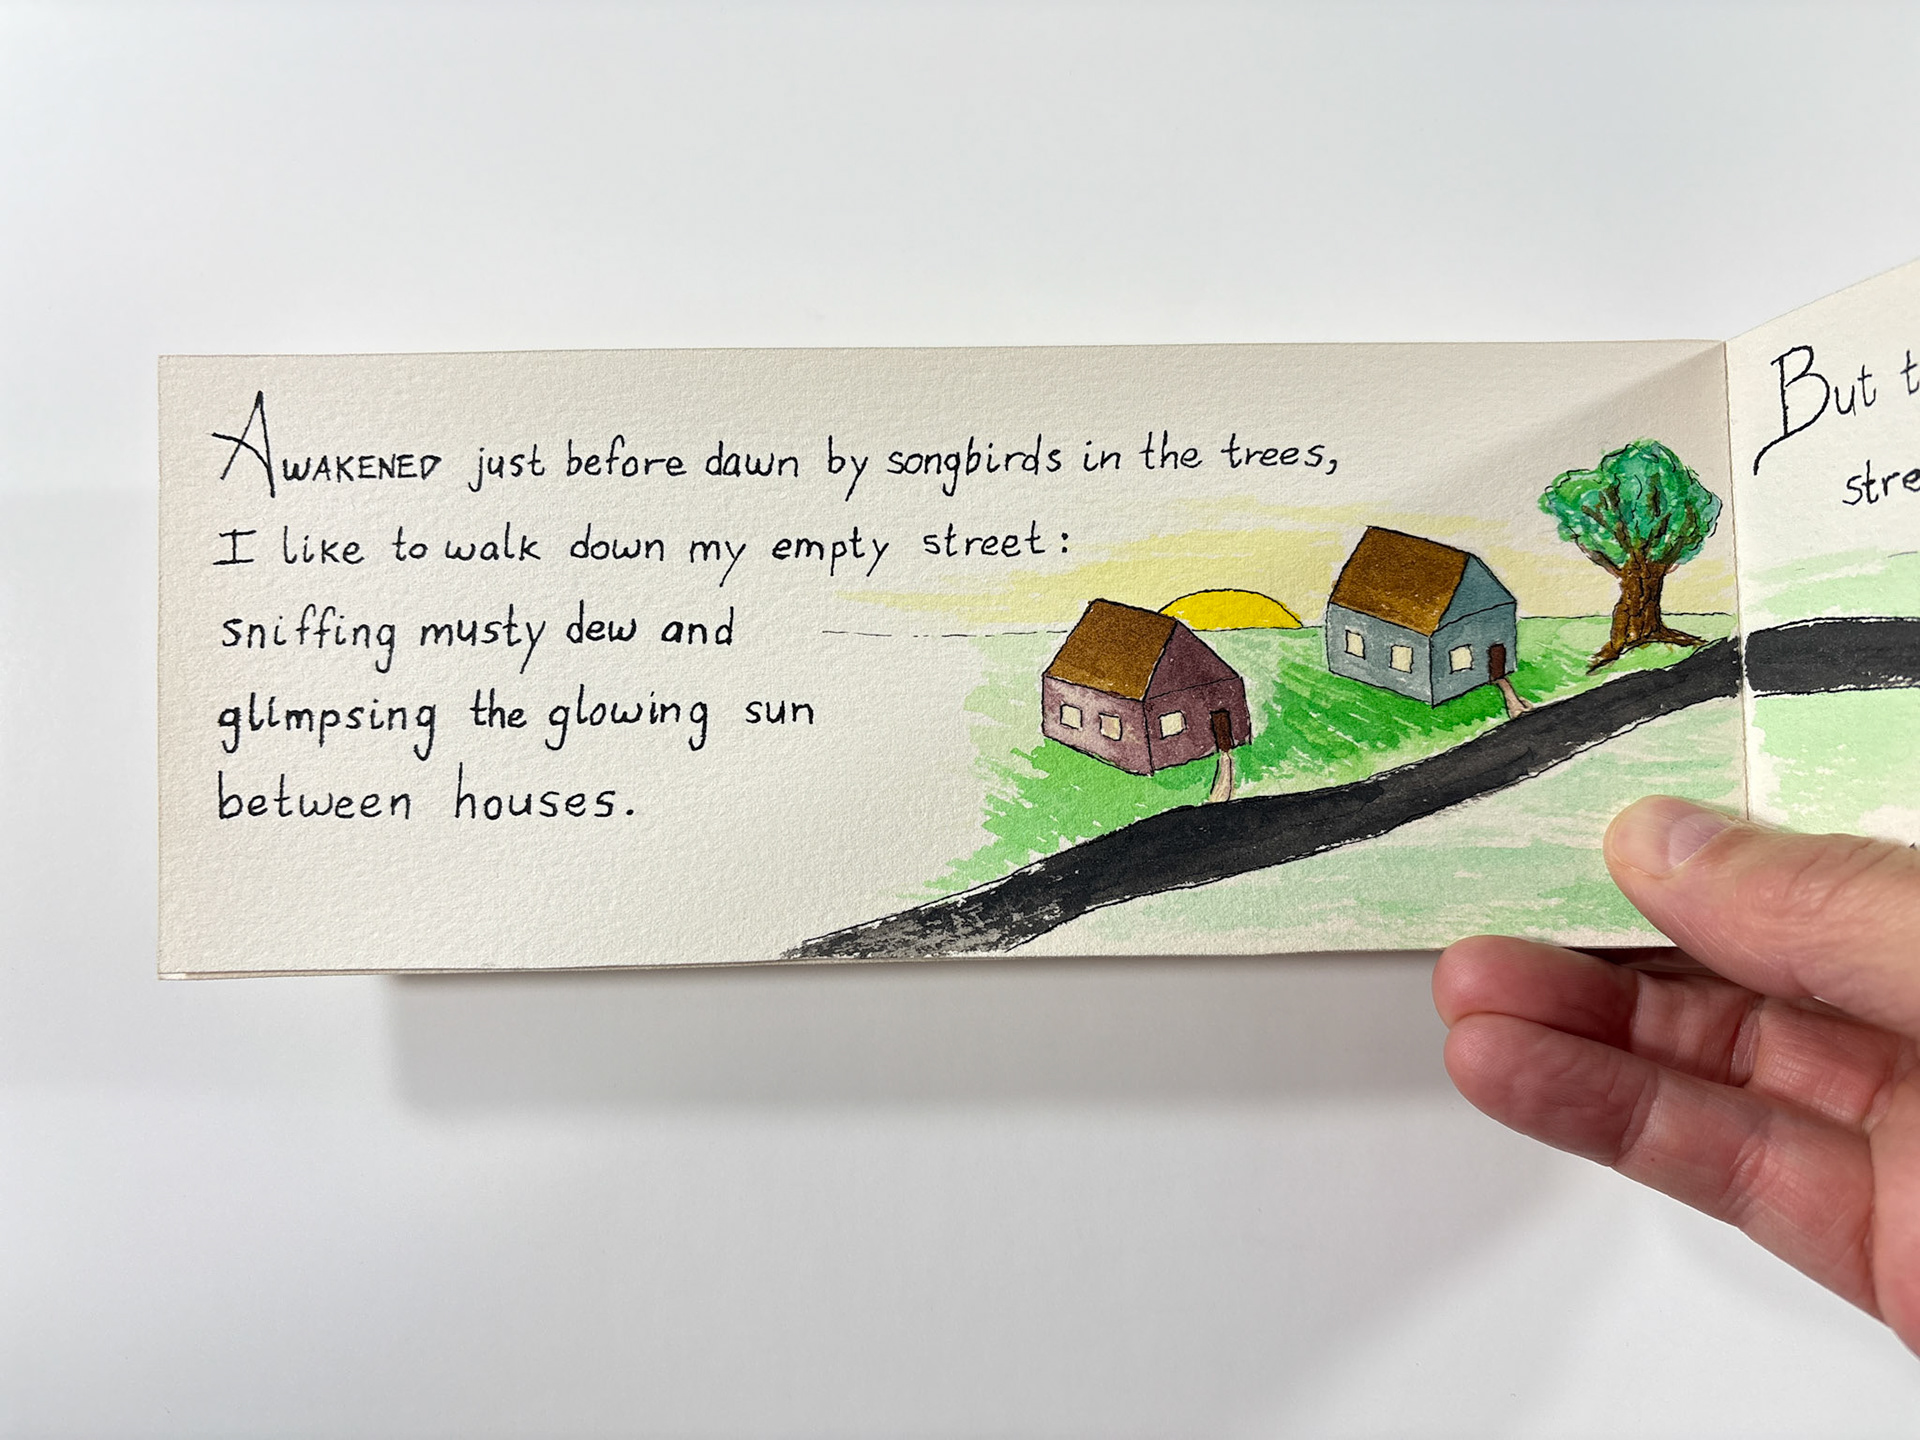 AWAKENED just before dawn by songbirds in the trees,
I like to walk down my empty street:
sniffing musty dew and
glimpsing the glowing sun
between houses.
But